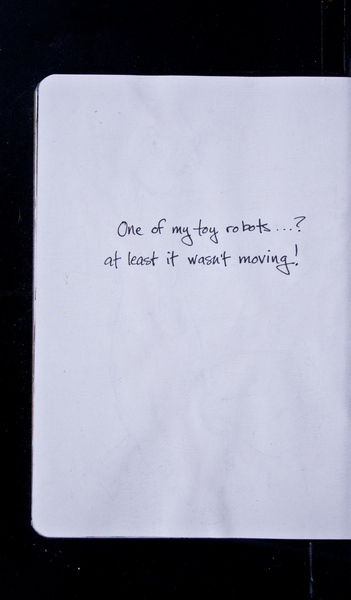 One of my toy robots...?
at least it wasn't moving!